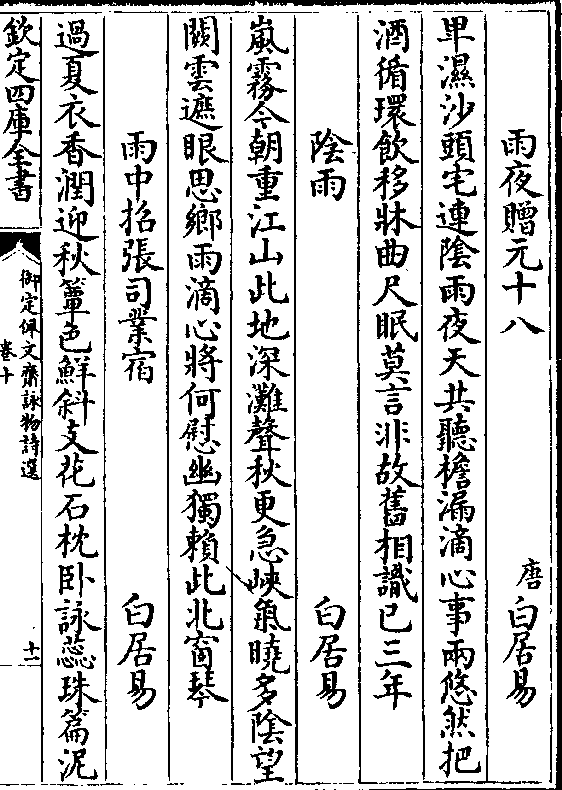 雨夜贈元十八 唐白居易
卑濕沙頭宅連陰雨夜天共聽檐漏滴心事兩悠然把
酒循環飲移牀曲尺眠莫言非故舊相識已三年
陰雨 白居易
嵐霧今朝重江山此地深灘聲秋更急峽氣曉多陰望
闕雲遮眼思鄉雨滴心將何慰幽獨賴此北窗琴
雨中招張司業宿 白居易
過夏衣香潤迎秋簟色鮮斜支花石枕卧詠蕊珠篇泥
欽定四庫全書
御定佩文齋詠物詩選
卷十
十一